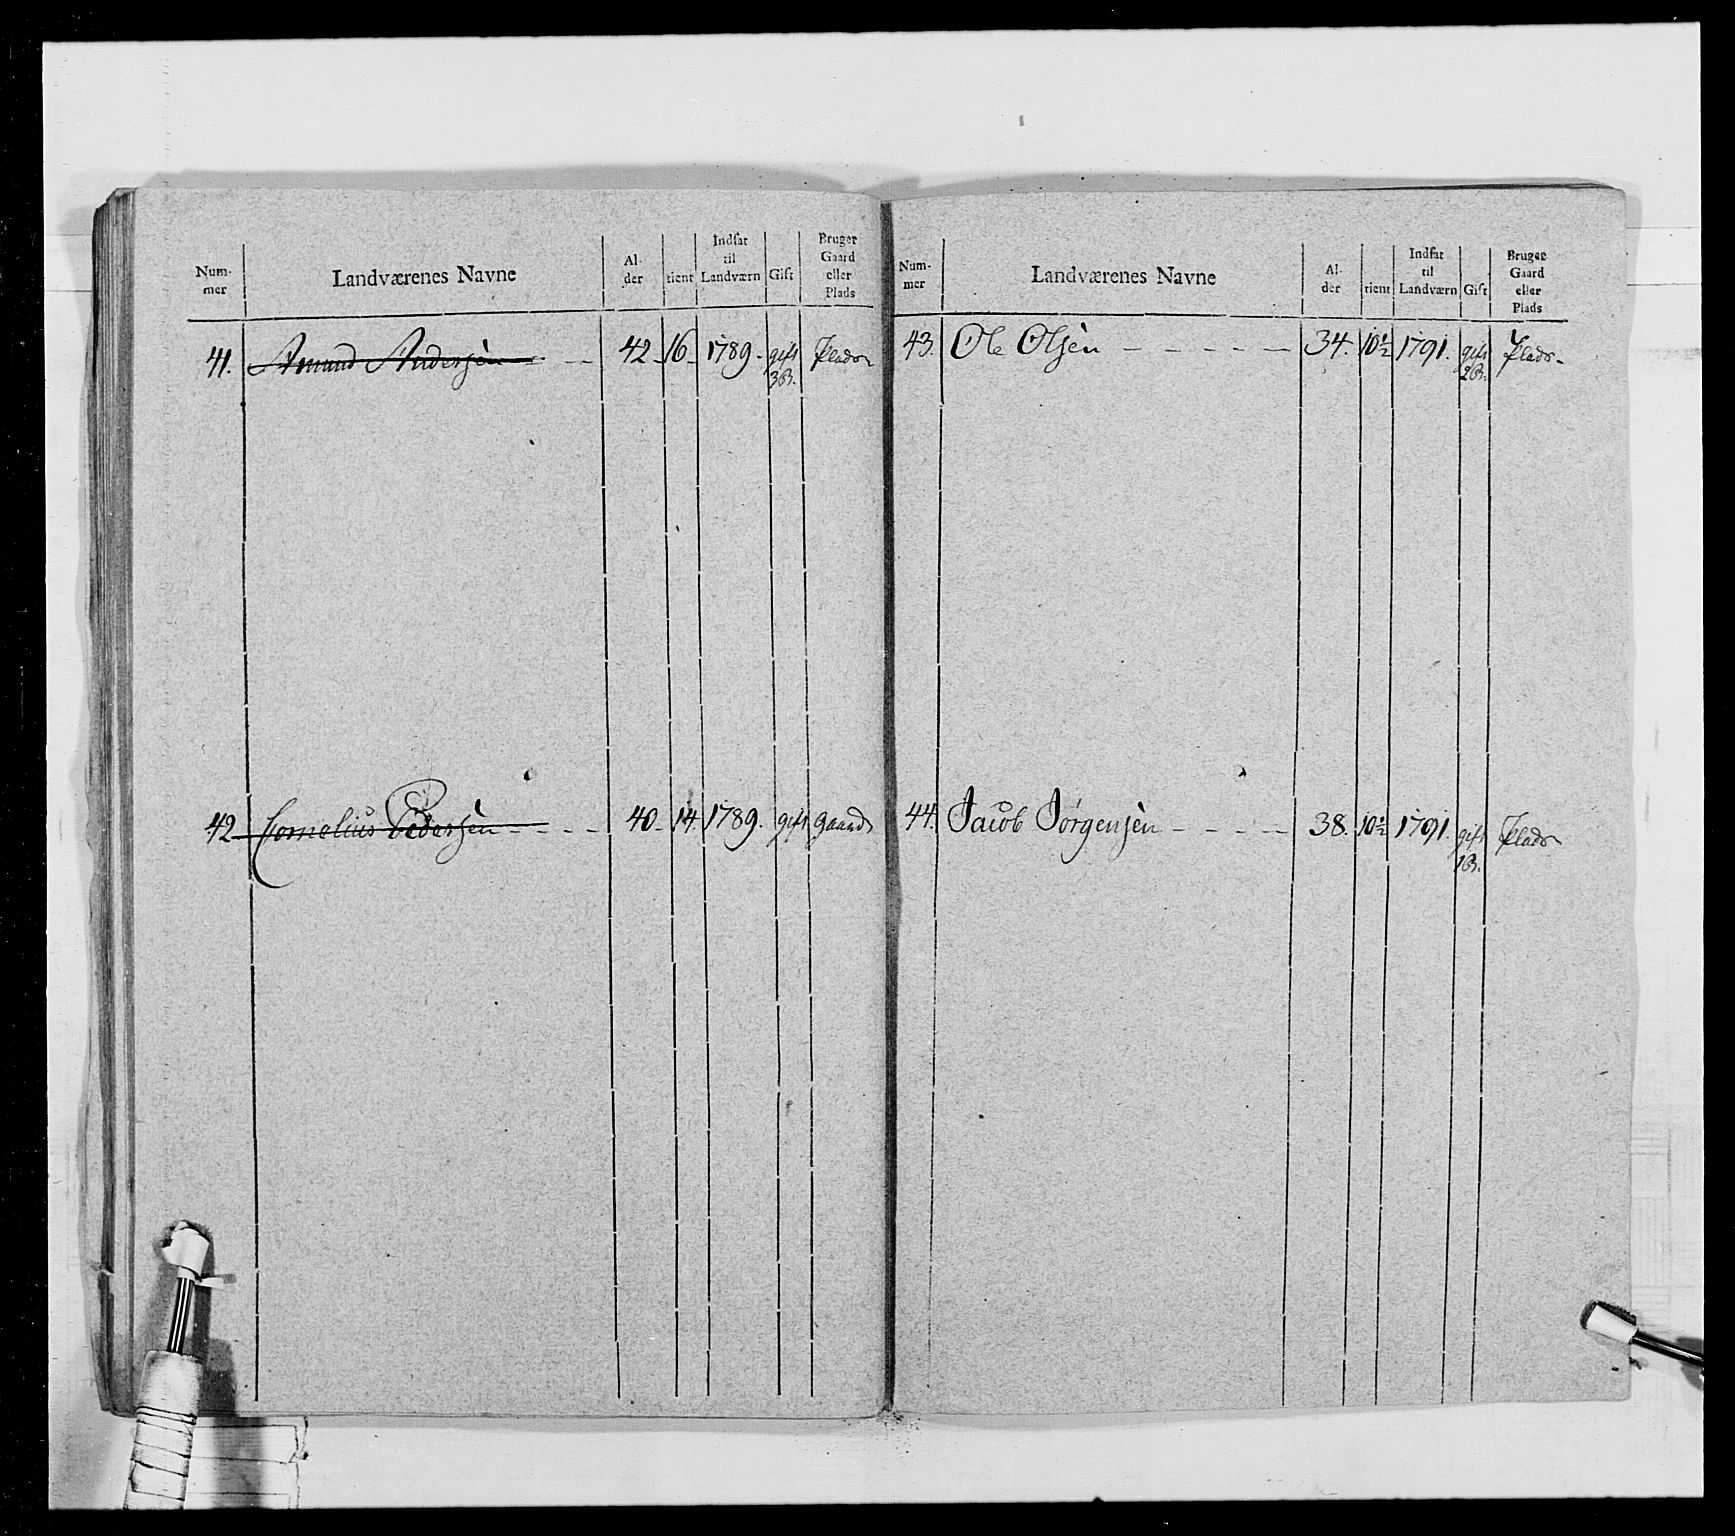 Num-
mer
Landværenes Navne
Al-
der
tient
Indsat
til
Landværn
Gift
Bruger
Gaard
eller
Plads
41. Amund Andersen 42 16 1789. gift Plads
3 B.
42 Cornelius Pedersen 40 14 1789. gift gaard
Num-
mer
Landværenes Navne
Al-
der
tient
Indsat
til
Landværn
Gift
Bruger
Gaard
eller
Plads
43. Ole Olsen 34. 10½ 1791. gift Plads
2 B.
44. Jacob Jørgensen 38. 10½ 1791. gift Plads
1 B.